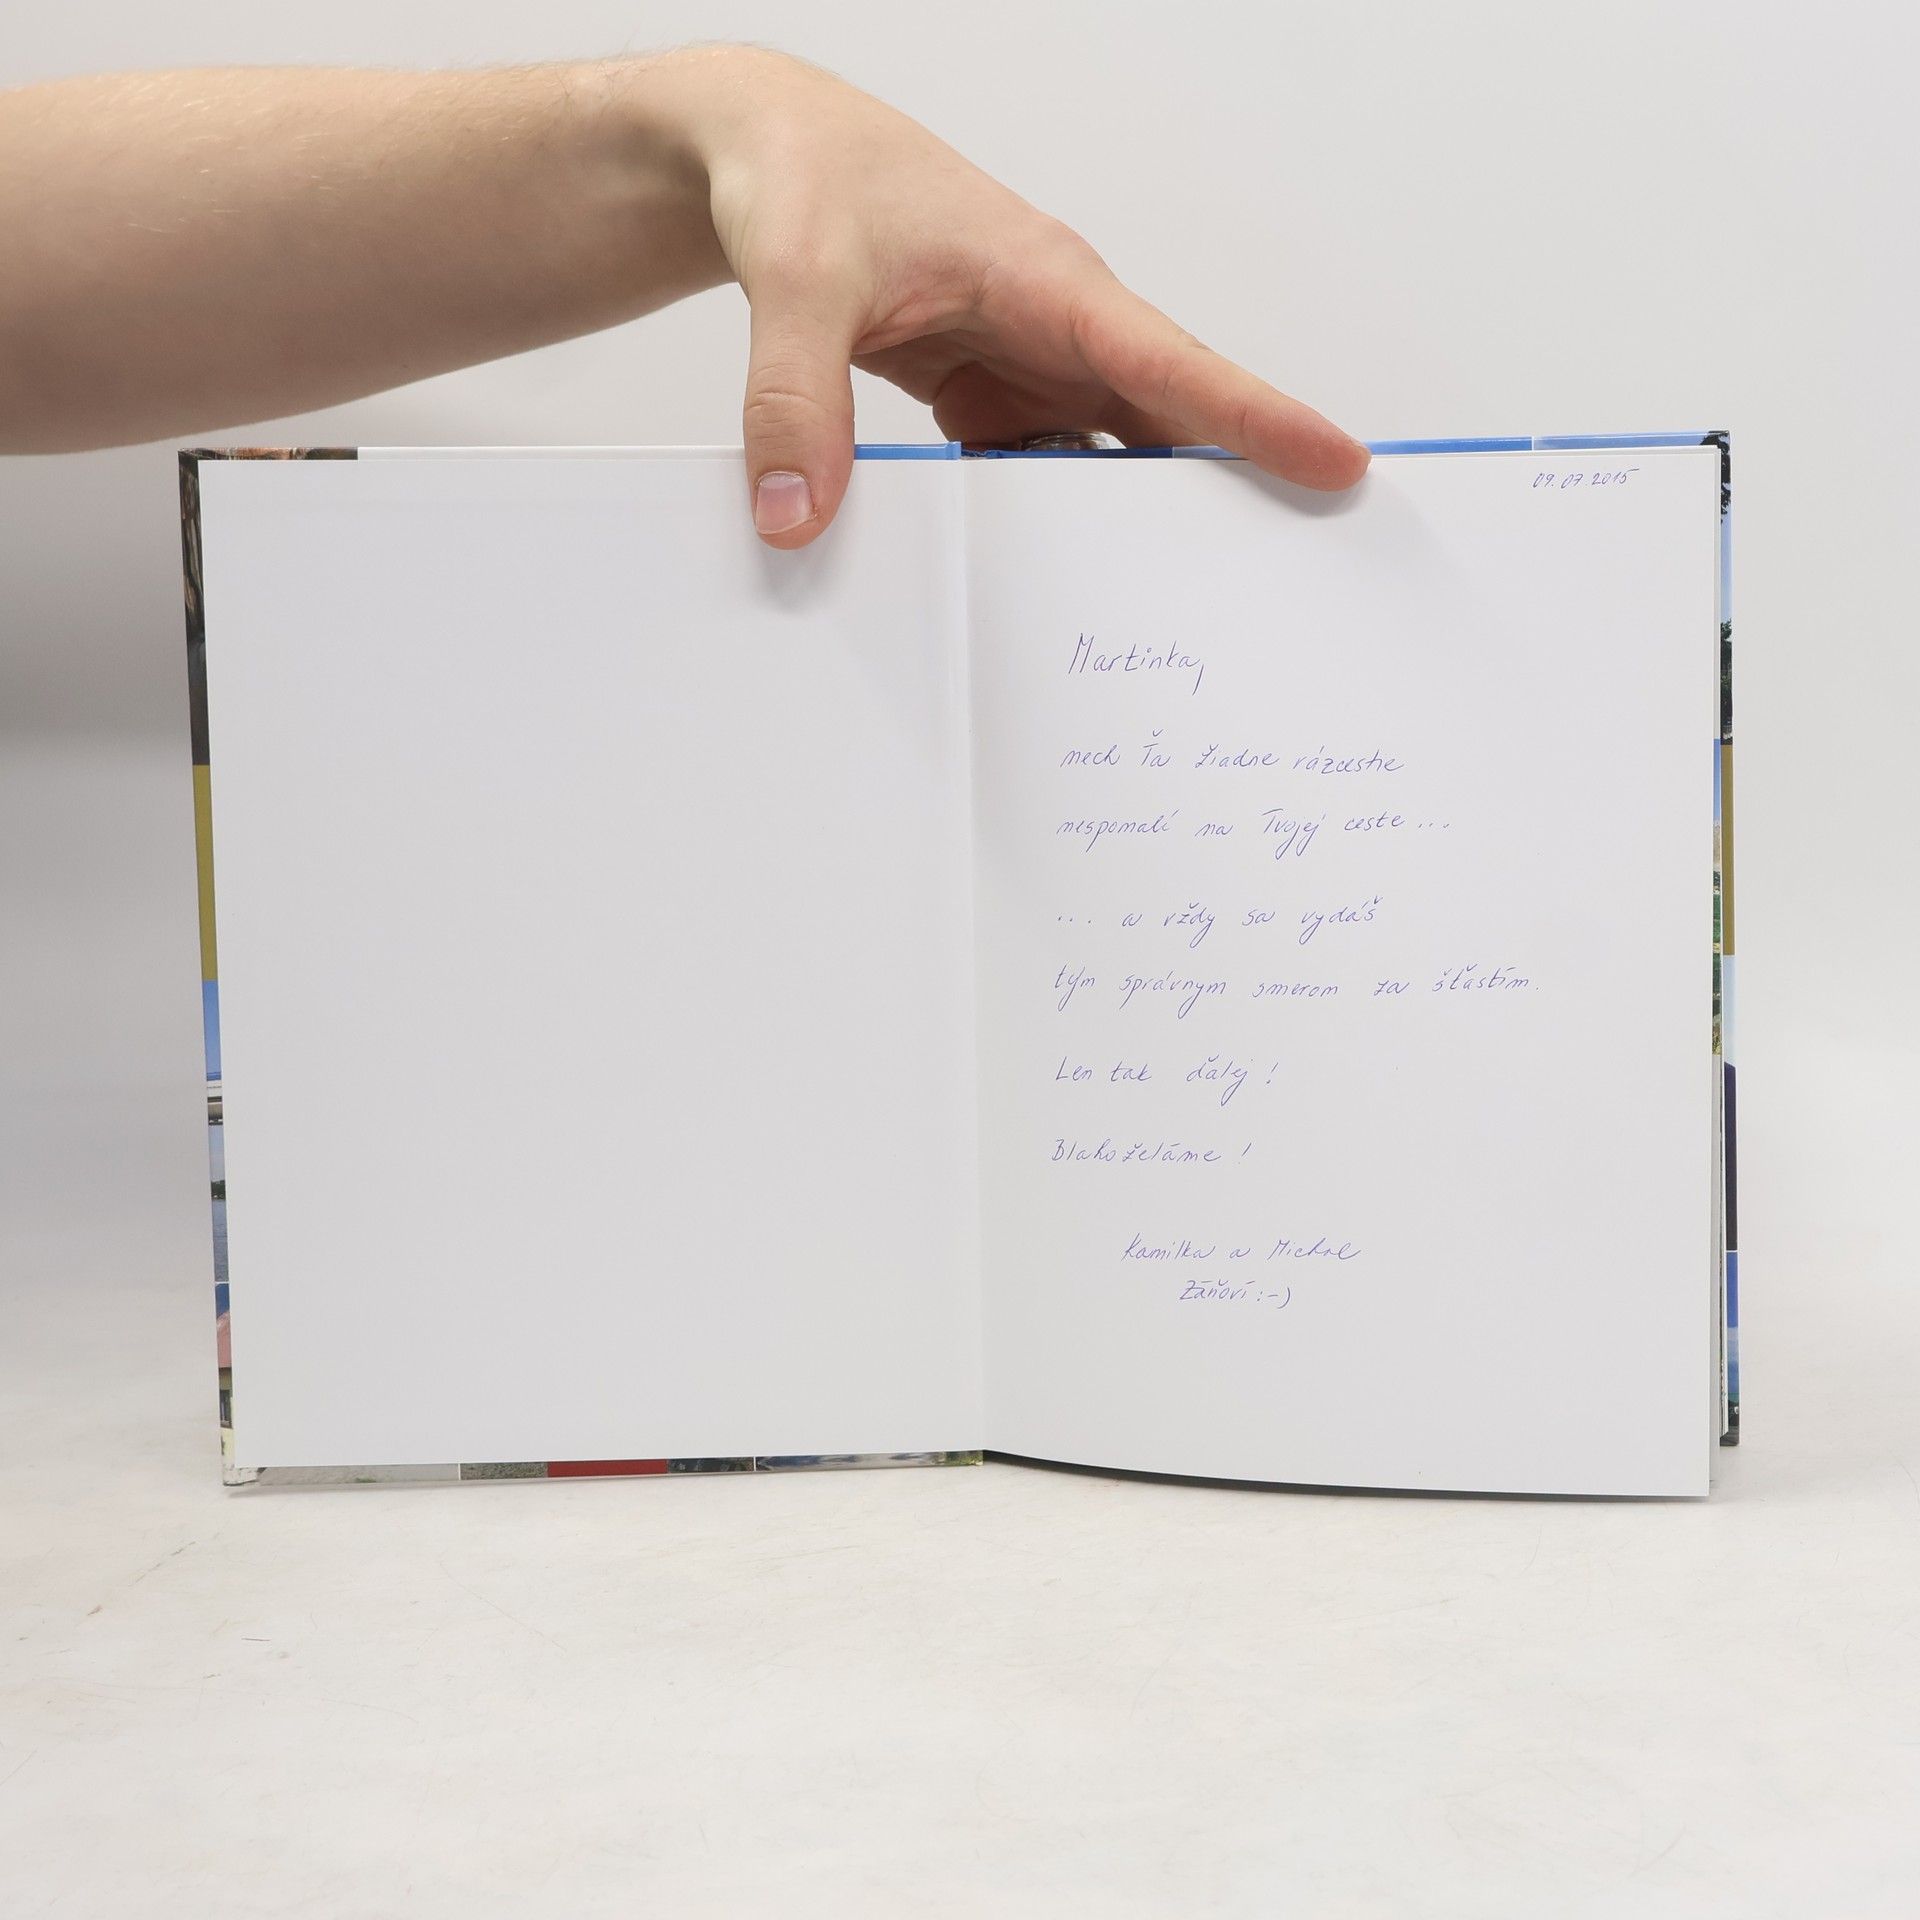 09.07.2015
Martinka,
nech Ťa žiadne rázcestie
nespomalí na Tvojej ceste ...
... a vždy sa vydáš
tým správnym smerom za šťastím.
Len tak ďalej !
Blahoželáme !
Kamilka a Michal
Záňoví :-)